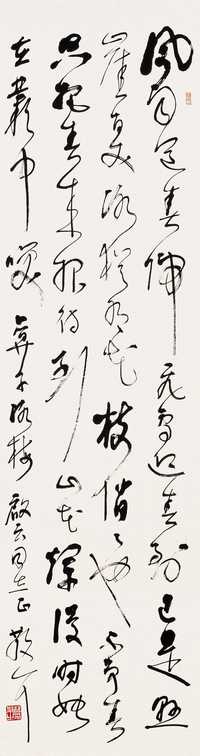 風雨送春歸飛雪迎春到已是懸
崖百丈冰猶有花枝俏〻也不爭春
只把春來報待到山花爛漫時她
在叢中笑 卜算子詠梅 啟云同志正 散耳